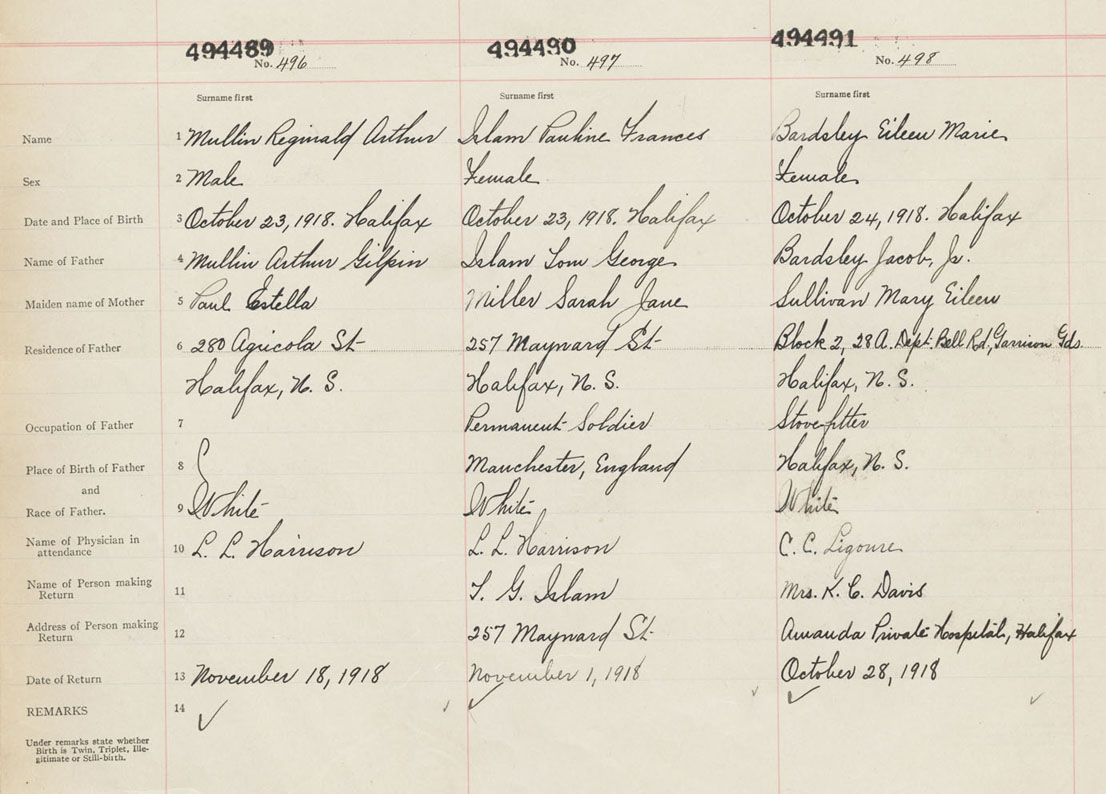 494489 494490 494491
No. 496 No. 497 No. 498
Surname first Surname first Surname first
Name 1 Mullin Reginald Arthur Islam Pauline Frances Bardsley Eileen Marie
Sex 2 Male Female Female
Date and Place of Birth 3 October 23, 1918. Halifax October 23, 1918. Halifax October 24, 1918. Halifax
Name of Father 4 Mullin Arthur Gilpin Islam Tom George Bardsley Jacob, Jr.
Maiden name of Mother 5 Paul Estella Miller Sarah Jane Sullivan Mary Eileen
Residence of Father 6 280 Agricola St 257 Maynard St Block 2, 28 A. Dept. Bell Rd, Garrison Gds.
Halifax, N. S. Halifax, N. S. Halifax, N. S.
Occupation of Father 7 Permanent Soldier Stove-fitter
Place of Birth of Father 8 Manchester, England Halifax, N. S.
and
Race of Father. 9 White White White
Name of Physician in
attendance 10 L. L. Harrison L. L. Harrison C. C. Ligoure
Name of Person making
Return 11 T. G. Islam Mrs. K. C. Davis
Address of Person making
Return 12 257 Maynard St Amanda Private Hospital, Halifax
Date of Return 13 November 18, 1918 November 1, 1918 October 28, 1918
REMARKS 14
Under remarks state whether
Birth is Twin, Triplet, Ille-
gitimate or Still-birth.